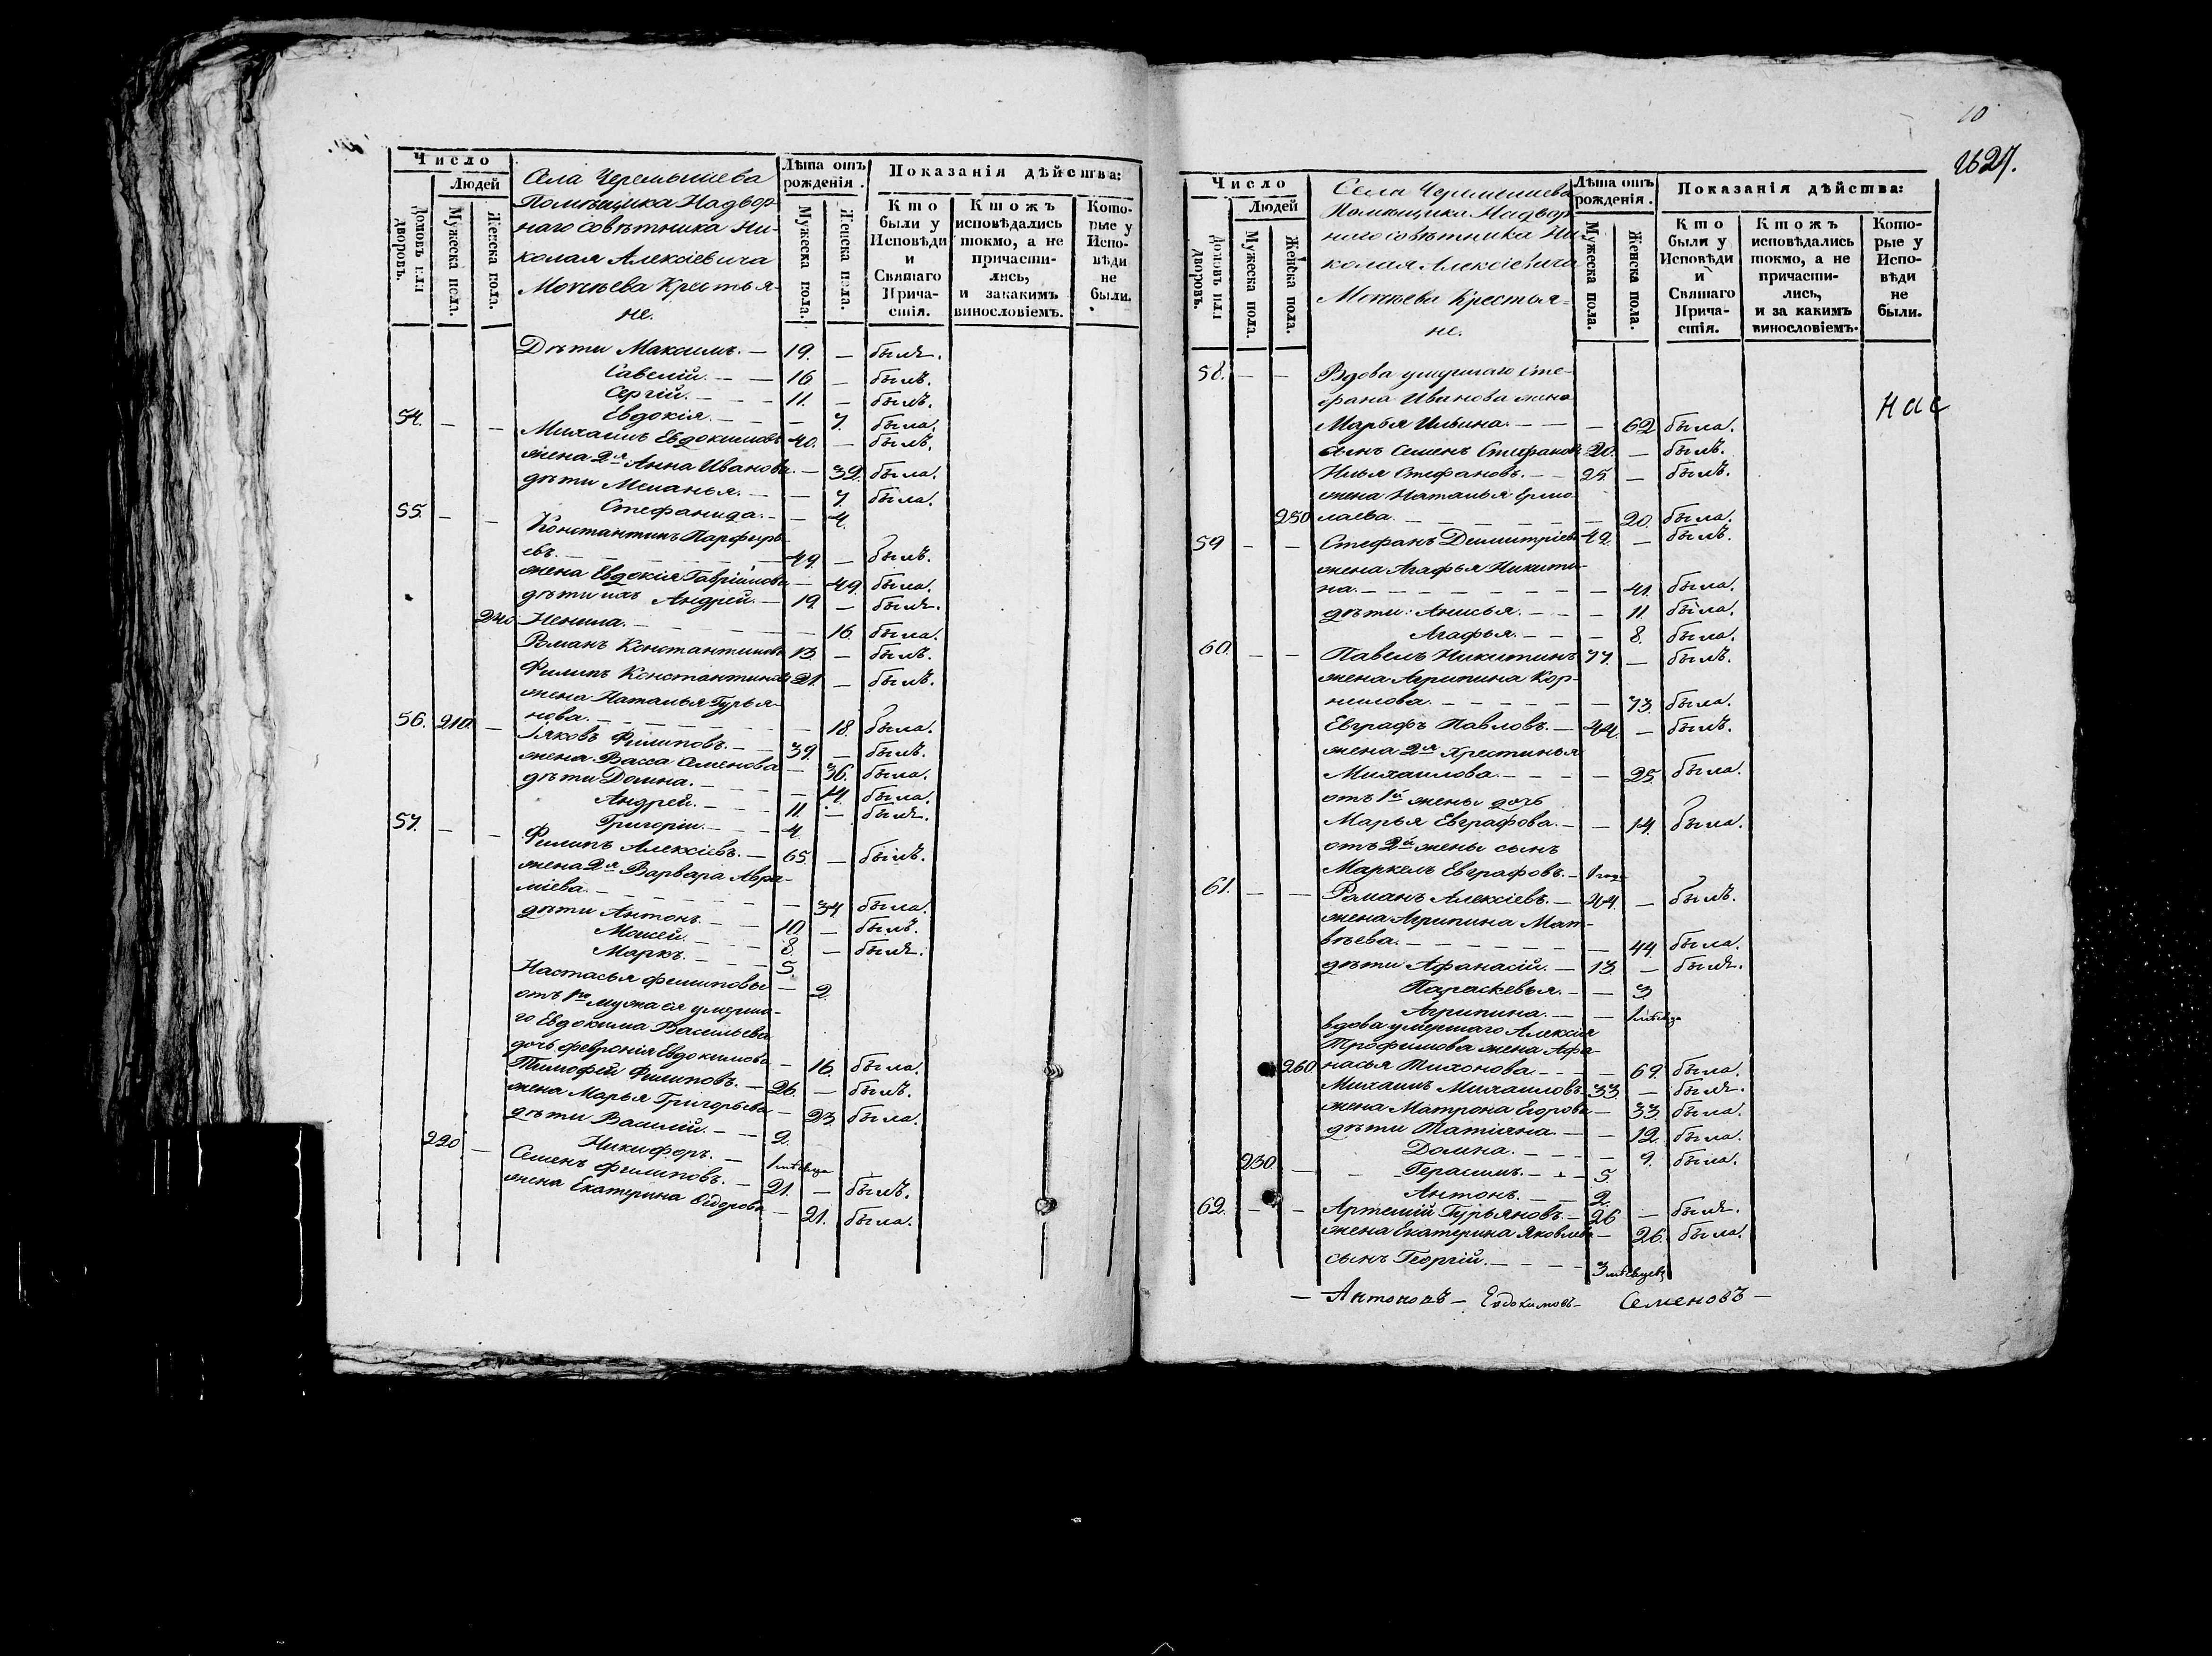 Число
Людей
Домовъ или дворовъ.
Мужеска пола.
Женска пола.
Села Черемышева
Помѣщика Надвор-
наго совѣтника Ни-
колая Алексіевича
Мотѣева Крестья-
не.
Лѣта отъ рожденія.
Мужеска пола.
Женска пола.
Показанія дѣйства:
Кто были у Исповѣди и Святаго Причастія.
Ктожъ исповѣдались токмо, а не причастились, и закакимъ винословіемъ.
Которые у Исповѣди не были.
Дѣти Максимъ. — 19. — былъ.
Савелій. — — 16 — былъ.
Сергій. — — 11. — былъ.
Евдокія. — — 7. была.
54. — — Михаилъ Евдокимовъ 40. — былъ.
жена 2я Анна Иванова. — 32. была.
дѣти Меланья. — — 7. была.
Стефанида. — — 4.
55. — — Константинъ Парфирь-
евъ. — — 49. — былъ.
жена Евдокія Гаврійлова — 49. была.
дѣти ихъ Андрей. — 19. — былъ.
240 Ненила. — — 16. была.
Романъ Константиновъ 13. — былъ.
Филипъ Константиновъ 21. — былъ.
жена Наталья Гурья-
нова. — — 18. была.
56. 210. — Іяковъ Филиповъ. — 39. — былъ.
жена Васса Семенова — 36. была.
дѣти Домна. — — 14. была.
Андрей. — — 11. — былъ.
Григорій. — — 4.
57. — — Филипъ Алексіевъ. — 65. — былъ.
жена 2я Варвара Авра-
міева. — — 34 была.
дѣти Антонъ. — — 10. — былъ.
Моисей. — — 8. — былъ.
Маркъ. — — 5.
Настасья Филиповы — 2.
отъ 1го мужа ея умерша-
го Евдокима Васильева
дочь Февронія Евдокимова — 16. была.
Тимофей Филиповъ. — 26. — былъ.
жена Марья Григорьева — 23 была.
дѣти Василій. — — 2.
220 — Никифоръ. — 1 мѣсяца
Семенъ Филиповъ. — 21. — былъ.
жена Екатерина Ѳедорова — 21. была.
10
1627.
Число
Людей
Домовъ или дворовъ.
Мужеска пола.
Женска пола.
Села Черемышева
Помѣщика Надвор-
наго совѣтника Ни-
колая Алексіевича
Мотѣева Крестья-
не.
Лѣта отъ рожденія.
Мужеска пола.
Женска пола.
Показанія дѣйства:
Кто были у Исповѣди и Святаго Причастія.
Ктожъ исповѣдались токмо, а не причастились, и за какимъ винословіемъ.
Которые у Исповѣди не были.
58. — — Вдова умершаго Сте-
фана Иванова жена
Нас
Марья Ильина. — — 62 была.
сынъ Семенъ Стефановъ 20. — былъ.
Илья Стефановъ. — 25. — былъ.
жена Наталья Ермо-
250 лаева. — — 20. была.
59 — — Стефанъ Димитріевъ 42. — былъ.
жена Агафья Никити-
на. — — 41. была.
дѣти: Анисья. — — 11. была.
Агафья. — — 8. была.
60. — — Павелъ Никитинъ 77. — былъ.
жена Агрипина Кор-
нилова. — — 73. была.
Евграфъ Павловъ. — 44. — былъ.
жена 2я Христинья
Михаилова. — — 25. была.
отъ 1й жены дочь
Марья Евграфова. — — 14. была.
отъ 2й жены сынъ
Маркелъ Евграфовъ. — 1 года
61. — — Романъ Алексіевъ. — 44. — былъ.
жена Агрипина Мат-
вѣева. — — 44. была.
дѣти Афанасій. — 13. — былъ.
Параскевья. — — 3
Агрипина. — — 1 мѣсяца
вдова умершаго Алексія
Трофимова жена Афа-
260. насья Тихонова — — 69. была.
Михаилъ Михаиловъ. 33. — былъ.
жена Матрона Егорова — 33. была.
дѣти Татіана. — — 12. была.
Домна. — — 9. была.
230. — Герасимъ. — 5.
Антонъ. — — 2.
62. — — Артемій Гурьяновъ. — 26 — былъ.
жена Екатерина Яковлева — 26. была.
сынъ Георгій. — — 3 мѣсяцевъ
— Антоновъ — Евдокимовъ — Семеновъ —